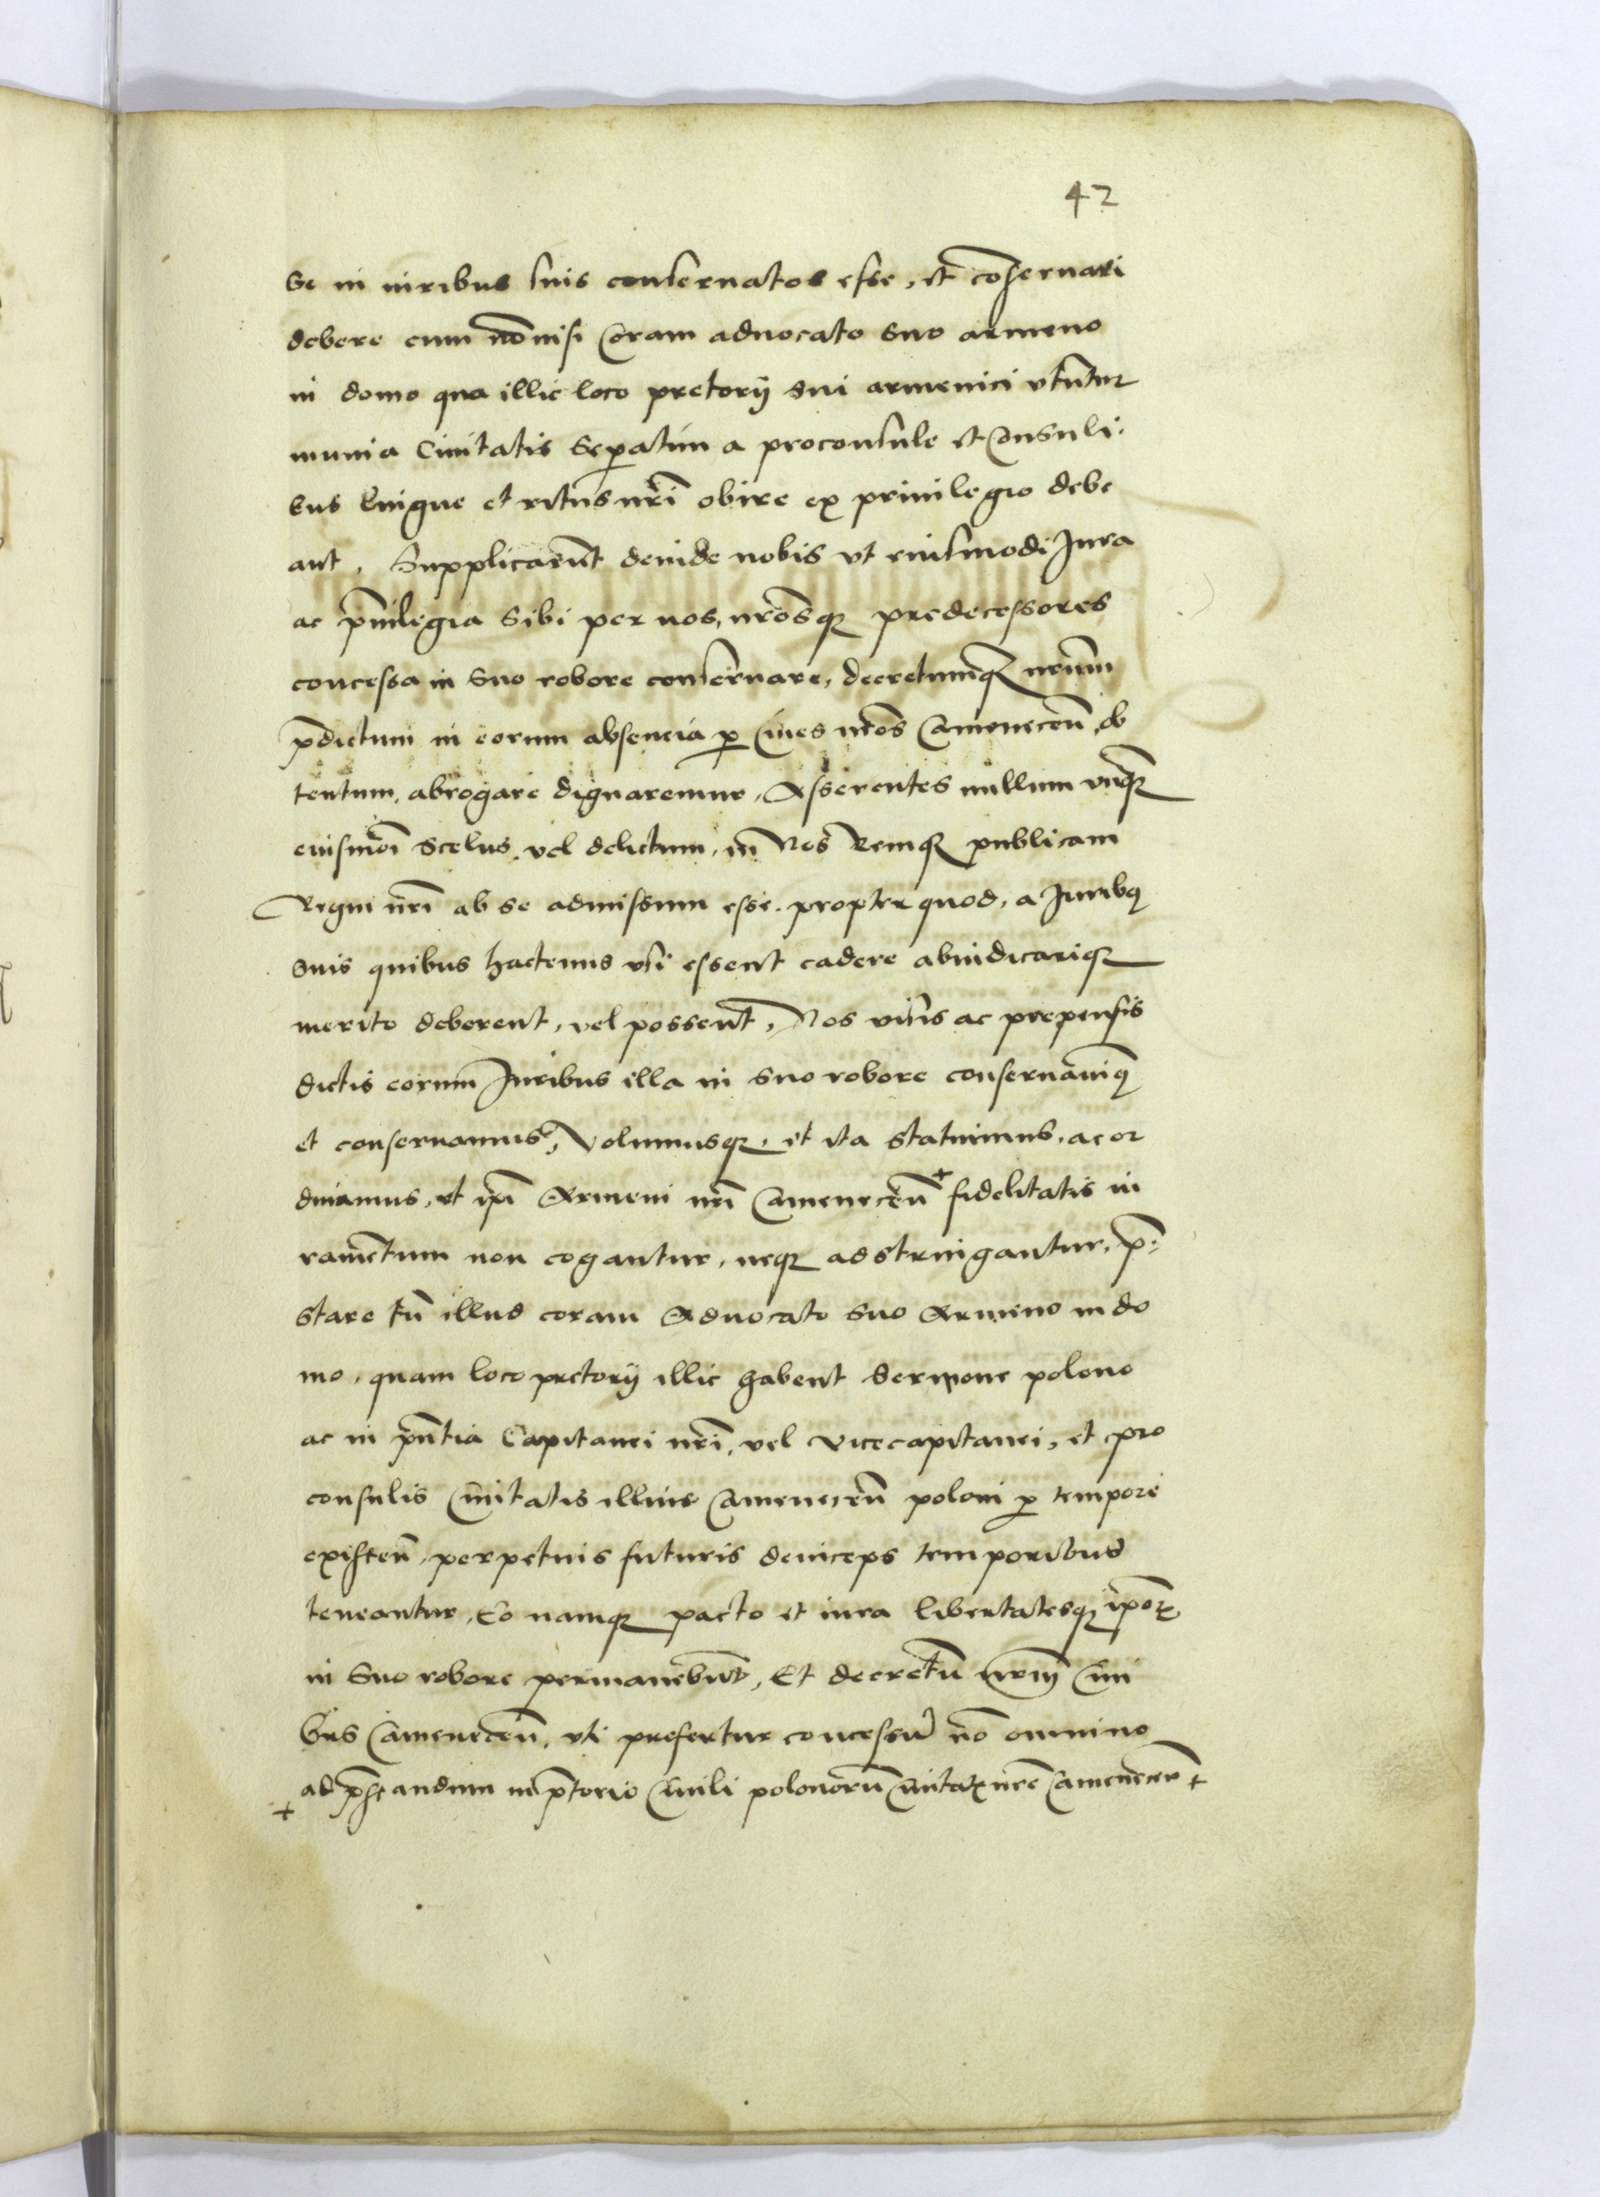 42
se in iuribus suis conseruatos esse, et cōseruari
debere cum nōnisi Coram aduocato suo armeno
in domo qua illic loco pretorÿ sui armenici vtūtur
munia Ciuitatis Sepatim a proconsule et Consuli-
bus linguę et ritus nri obire ex priuilegio debe
ant, Supplicarūt deinde nobis vt eiusmodi Jura
ac priuilegia sibi per nos, nrosq predecessores
concessa in suo robore conseruare, decretumq nrum
pdictum in eorum absencia p Ciues nros Camenecen̄ ob
tentum, abrogare dignaremur, Asserentes nullum vnq
eiusmōi scelus, vel delictum, in Nos Remq publicam
Regni nri ab se admissum esse. propter quod, a Juribq
suis quibus hactenus vsi essent cadere abiudicariq
merito deberent, vel possent, Nos visis ac prepensis
dictis eorum Juribus illa in suo robore conseruanimq
et conseruamus, Volumusq, et ita statuimus, ac or
dinamus, vt ipi Armeni nri Camenecen̄ + fidelitatis iu
ramētum non cogantur, neq adstringantur, p-
stare tn̄ illud coram Aduocato suo Armeno in do
mo, quam loco pretorÿ illic habent sermone polono
ac in pn̄tia Capitanei nri, vel vicecapitanei, et pro
consulis Ciuitatis illius Camenecen̄ poloni p tempore
existen̄, perpetuis futuris deinceps temporibus
teneantur, Eo namq pacto et iura libertatesq ipor
in suo robore permanebūt, Et decretū nrm Ciui
bus Camenecen̄, vti prefertur concessū nō omnino
+ ad pstandum in ptorio Ciuili polonorū Ciuitatis nre Camenecen̄ +